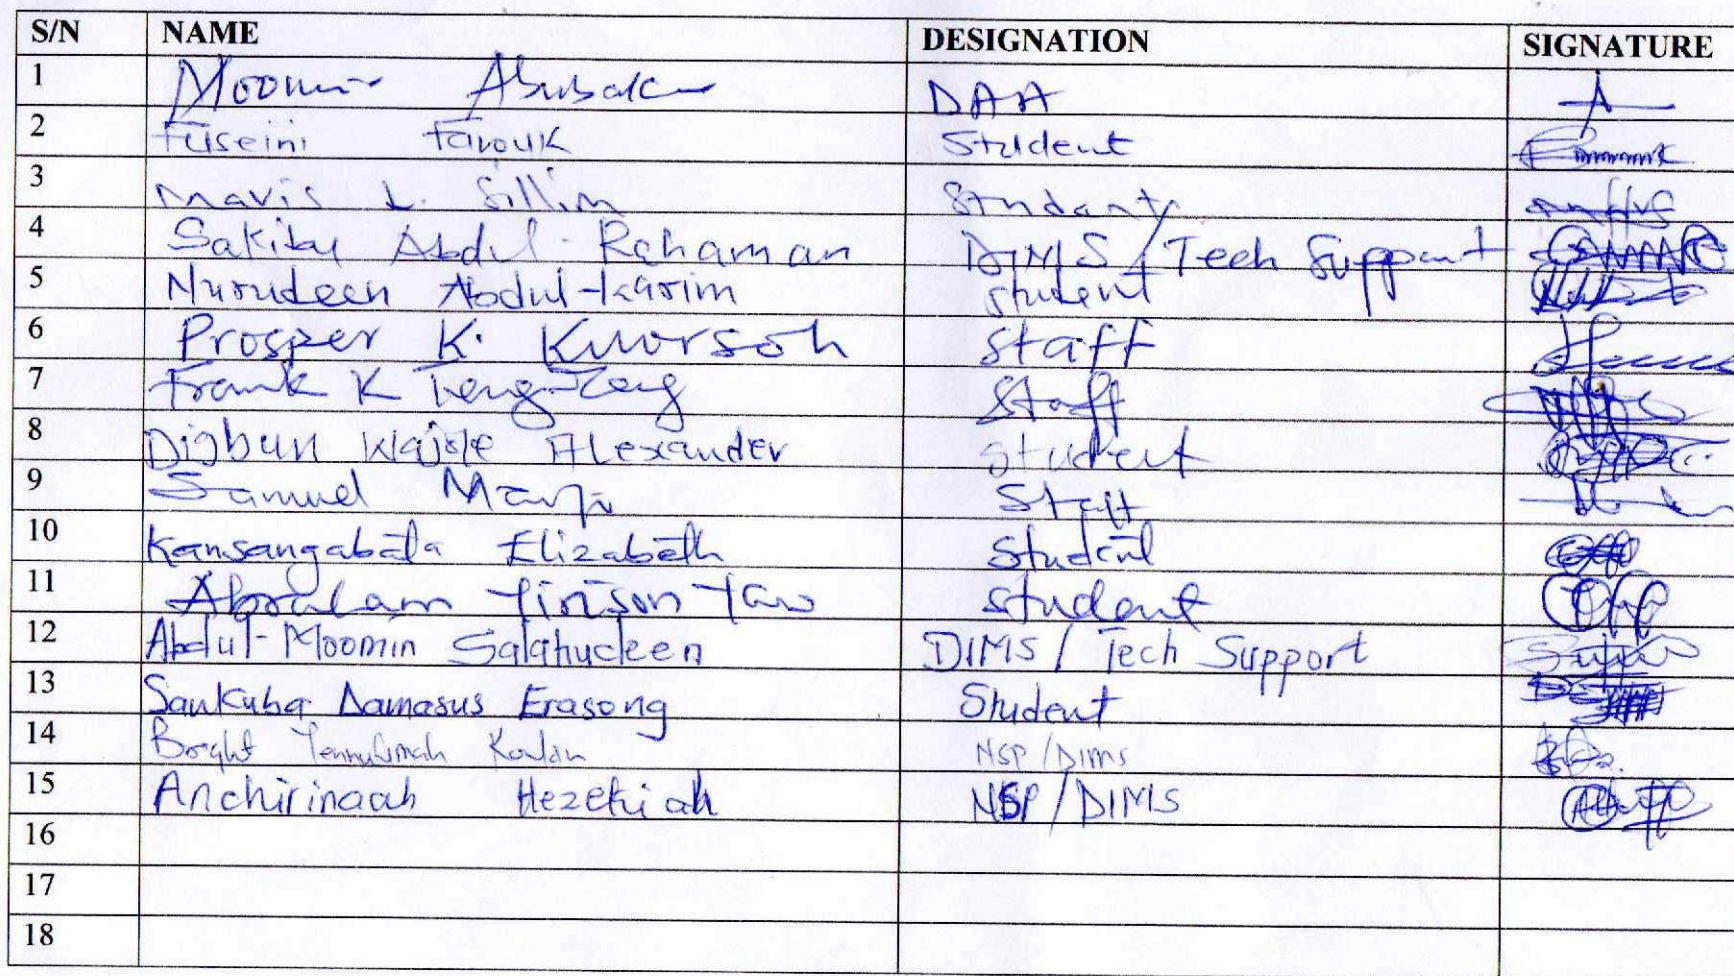 S/N NAME DESIGNATION SIGNATURE
1 Moomin Abubakar DAA
2 Fuseini Farouk Student
3 Mavis L. Sillim Student
4 Sakibu Abdul-Rahaman DIMS/Tech Support
5 Nurudeen Abdul-Karim student
6 Prosper K. Kworsoh staff
7 Frank K Teng-Zeng Staff
8 Digbun Alexander student
9 Samuel Staff
10 Kansangabata Elizabeth Student
11 Yaw student
12 Abdul-Moomin Salahudeen DIMS/Tech Support
13 Saukuba Damasus Erasong Student
14 Bright NSP/DIMS
15 Anchirinaah Hezekiah NSP/DIMS
16
17
18